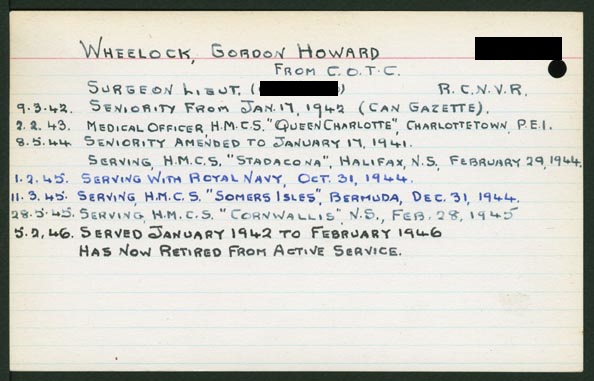 WHEELOCK, GORDON HOWARD
FROM C.O.T.C.
SURGEON LIEUT. ( ) R.C.N.V.R.
9.3.42. SENIORITY FROM JAN. 17, 1942 (CAN GAZETTE).
2.2.43. MEDICAL OFFICER, H.M.C.S. "QUEEN CHARLOTTE", CHARLOTTETOWN, P.E.I.
8.5.44 SENIORITY AMENDED TO JANUARY 17, 1941.
SERVING, H.M.C.S. "STADACONA", HALIFAX, N.S, FEBRUARY 29, 1944.
1.2.45. SERVING WITH ROYAL NAVY, OCT. 31, 1944.
11.3.45. SERVING, H.M.C.S. "SOMERS ISLES", BERMUDA, DEC. 31, 1944.
28.5.45. SERVING, H.M.C.S. "CORNWALLIS", N.S., FEB. 28, 1945
5.2.46. SERVED JANUARY 1942 TO FEBRUARY 1946
HAS NOW RETIRED FROM ACTIVE SERVICE.